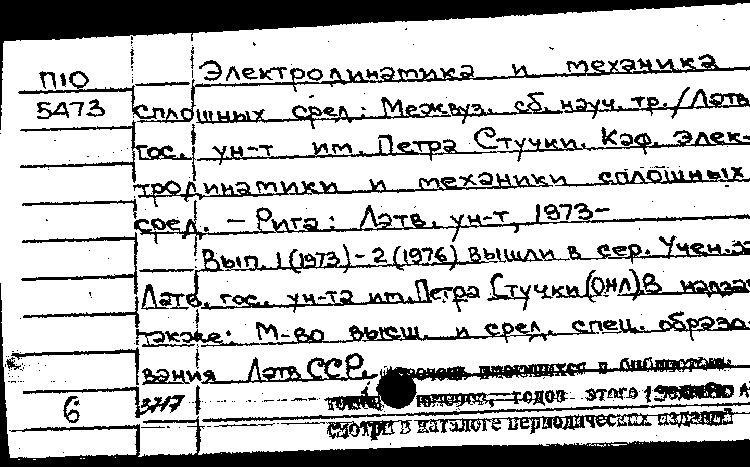 П10 Электродинамика и механика
5473 сплошных сред: Межвуз. сб. науч. тр./Латв.
гос. ун-т им. Петра Стучки. Каф. элек-
тродинамики и механики сплошных
сред. – Рига: Латв. ун-т, 1973–
Вып. 1(1973)-2(1976) вышли в сер. Учен. за
Латв. гос. ун-та им. Петра Стучки (ОНЛ) В надзаг
также: М-во высш. и сред. спец. образо-
вания Латв ССР. имеющихся в библиотеке
6 3717 номеров, годов этого издания
смотри в каталоге периодических изданий